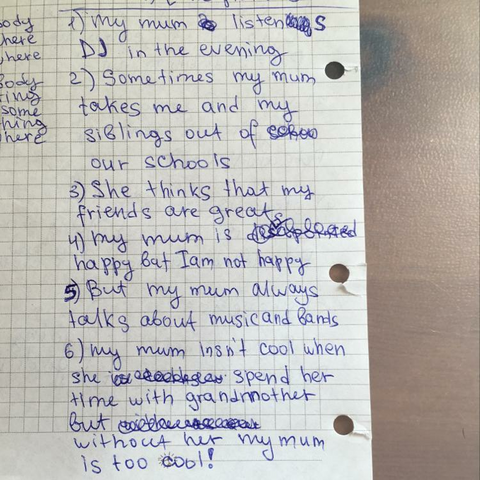 body
here
where
body
ting
some
thing
here
1) my mum listens
DJ in the evening
2) Sometimes my mum
takes me and my
siblings out of
our schools
3) She thinks that my
friends are great
4) my mum is
happy but I am not happy
5) But my mum always
talks about music and bands
6) my mum insn't cool when
she spend her
time with grandmother
but
without her my mum
is too cool!